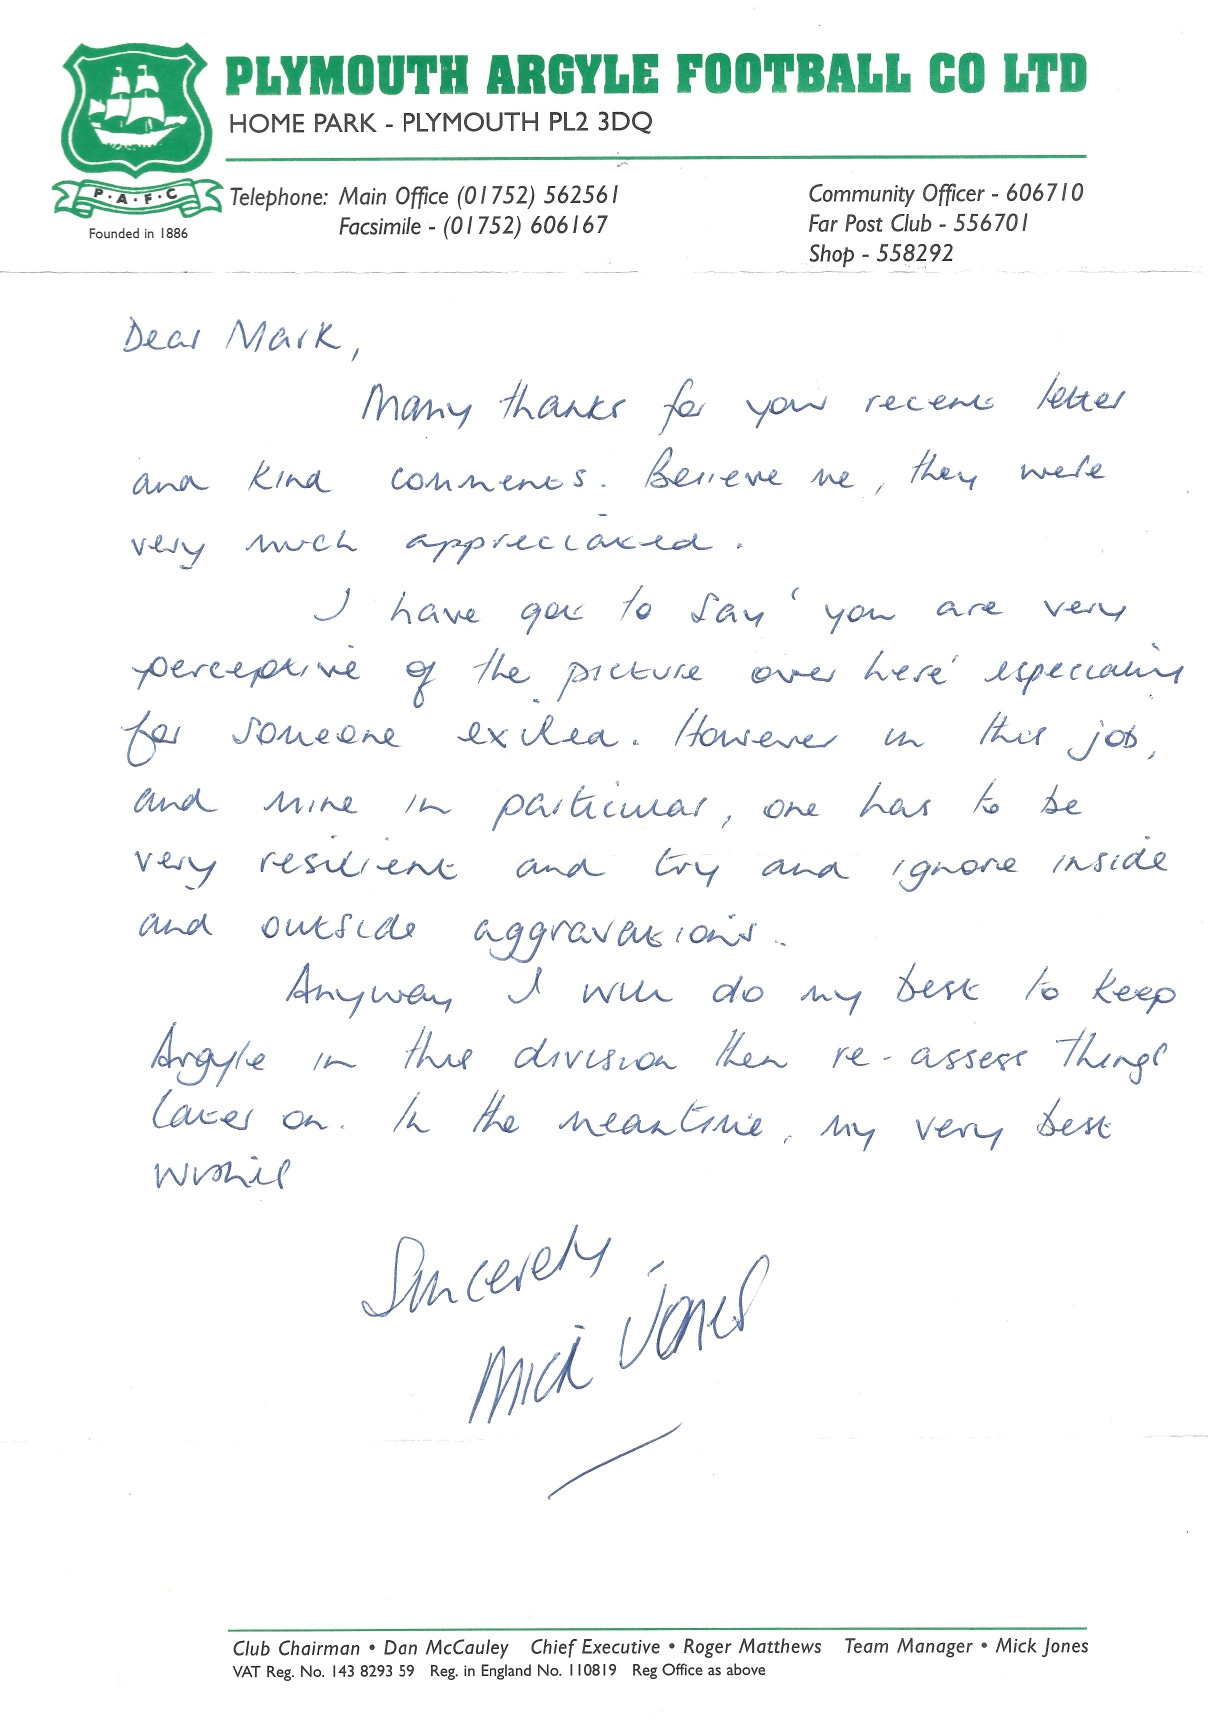 PLYMOUTH ARGYLE FOOTBALL CO LTD
HOME PARK - PLYMOUTH PL2 3DQ
P·A·F·C
Founded in 1886
Telephone: Main Office (01752) 562561
Facsimile - (01752) 606167
Community Officer - 606710
Far Post Club - 556701
Shop - 558292
Dear Mark,
Many thanks for your recent letter
and kind comments. Believe me, they were
very much appreciated.
I have got to say 'you are very
perceptive of the picture over here' especially
for someone exiled. However in this job,
and mine in particular, one has to be
very resilient and try and ignore inside
and outside aggravations.
Anyway I will do my best to keep
Argyle in this division then re-assess things
later on. In the meantime, my very best
wishes
Sincerely
Mick Jones
Club Chairman • Dan McCauley Chief Executive • Roger Matthews Team Manager • Mick Jones
VAT Reg. No. 143 8293 59 Reg. in England No. 110819 Reg Office as above